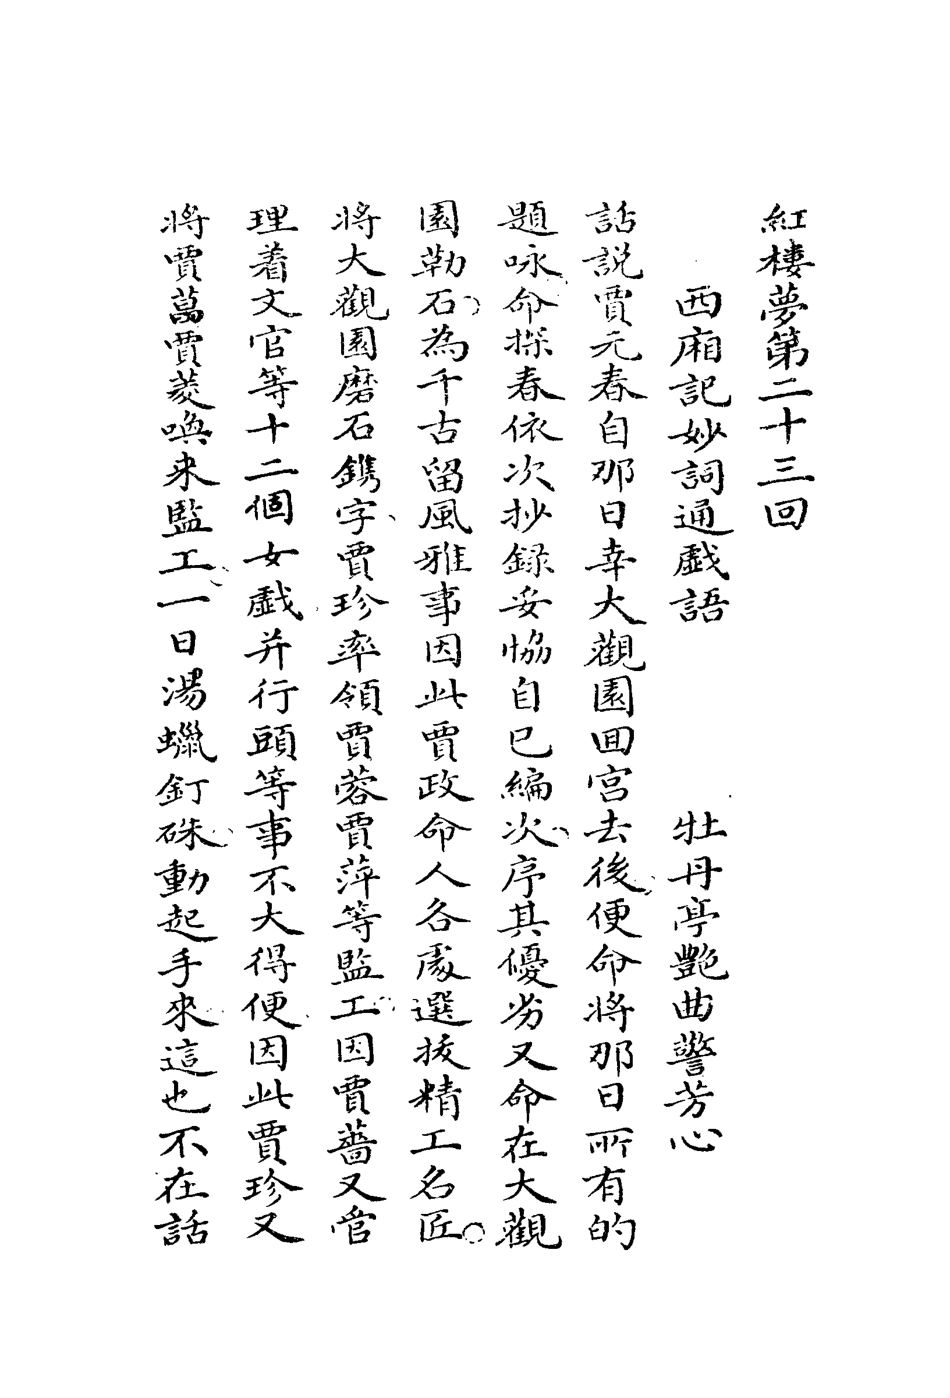 紅樓夢第二十三回
西廂記妙詞通戯語　牡丹亭艷曲警芳心
話説賈元春自那日幸大觀園囬宮去後便命將那日所有的
題咏命探春依次抄録妥恊自已編次序其優劣又命在大觀
園勒石為千古留風雅事因此賈政命人各處選拔精工名匠
將大觀園磨石鐫字賈珍率領賈蓉賈萍等監工因賈薔又管
理着文官等十二個女戯并行頭等事不大得便因此賈珍又
將賈萬賈菱喚来監工一日湯蠟釘硃動起手來這也不在話